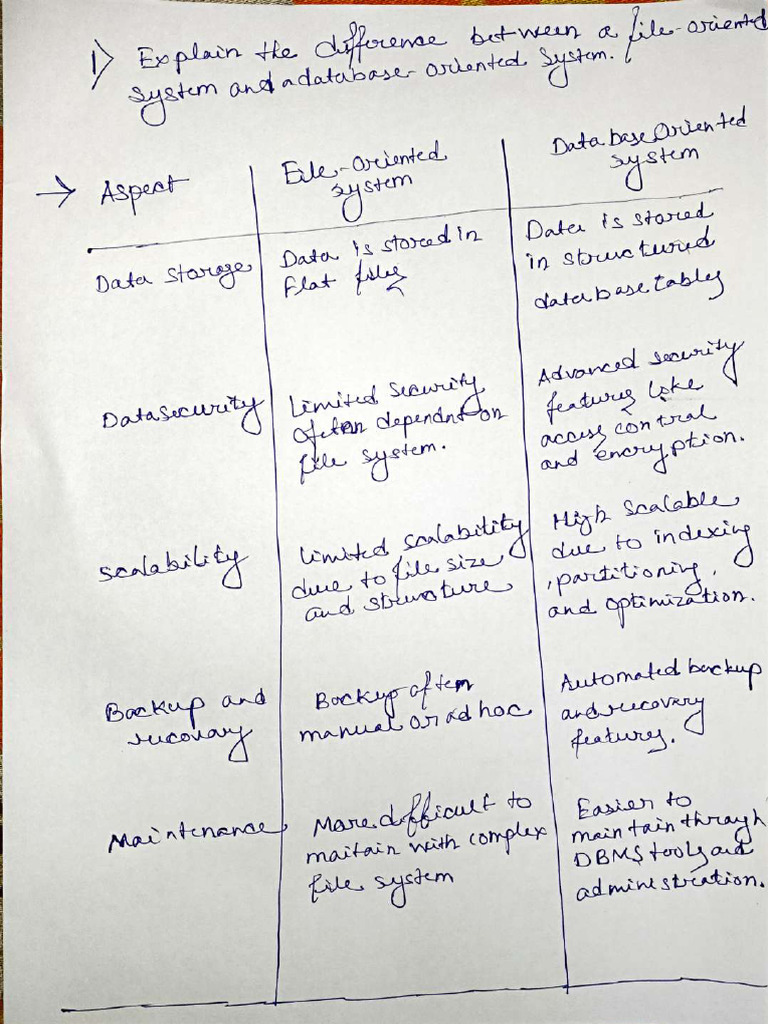 1) Explain the difference between a file-oriented
system and a database-oriented system.
→ Aspect
File-oriented
system
Database Oriented
system
Data storage
Data is stored in
flat files
Data is stored
in structured
database tables
Data security
Limited security
often dependnt on
file system.
Advanced security
features like
access control
and encryption.
Scalability
Limited scalability
due to file size
and structure
High Scalable
due to indexing
, partitioning,
and optimization.
Backup and
recovary
Backup often
manual or ad hoc
Automated backup
and recovary
features.
Maintenance
More difficult to
maitain with complex
file system
Easier to
maintain through
DBMS tools and
administration.